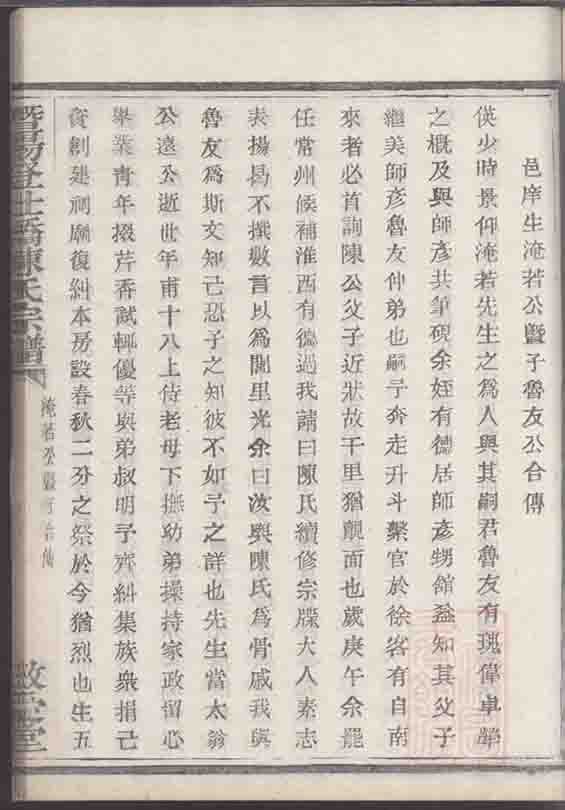 邑庠生淹若公暨子魯友公合傳
僕少時景仰淹若先生之為人與其嗣君魯友有瑰偉卓犖
之概及與師彥共筆硯余姪有德居師彥甥館益知其父子
繼美師彥魯友仲弟也嗣予奔走升斗繫官於徐客有自南
來者必首詢陳公父子近狀故千里猶覿面也歲庚午余罷
任常州候補淮西有德過我請曰陳氏續修宗牒大人素志
表揚曷不撰數言以為閭里光余曰汝與陳氏為骨戚我與
魯友為斯文知己恐子之知彼不如予之詳也先生當太翁
公遠公逝世年甫十八上侍老母下撫幼弟操持家政留心
舉業青年掇芹香試輒優等與弟叔明子齊糾集族眾捐己
資創建祠廟復糾本房設春秋二分之祭於今猶烈也生五
暨陽登仕橋陳氏宗譜
淹若公暨子合傳
敬愛堂